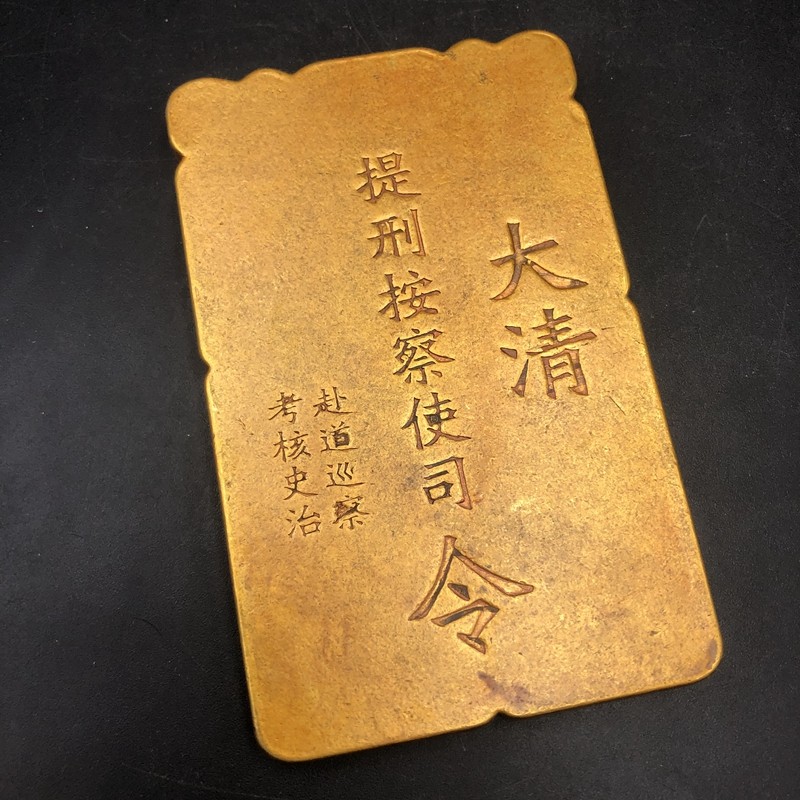 大清
提刑按察使司令
赴道巡察
考核史治